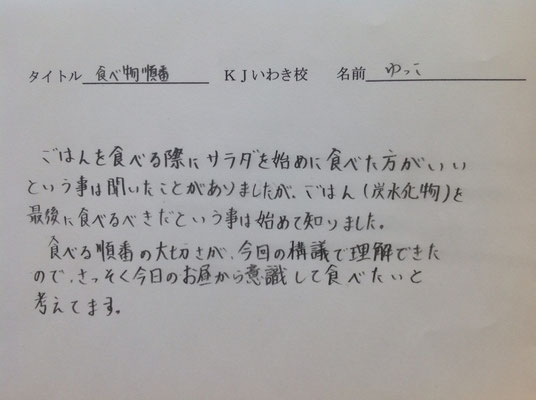 タイトル 食べ物順番 KJいわき校 名前 ゆっこ
ごはんを食べる際にサラダを始めに食べた方がいい
という事は聞いたことがありましたが、ごはん(炭水化物)を
最後に食べるべきだという事は始めて知りました。
食べる順番の大切さが、今回の構議で理解できた
ので、さっそく今日のお昼から意識して食べたいと
考えてます。